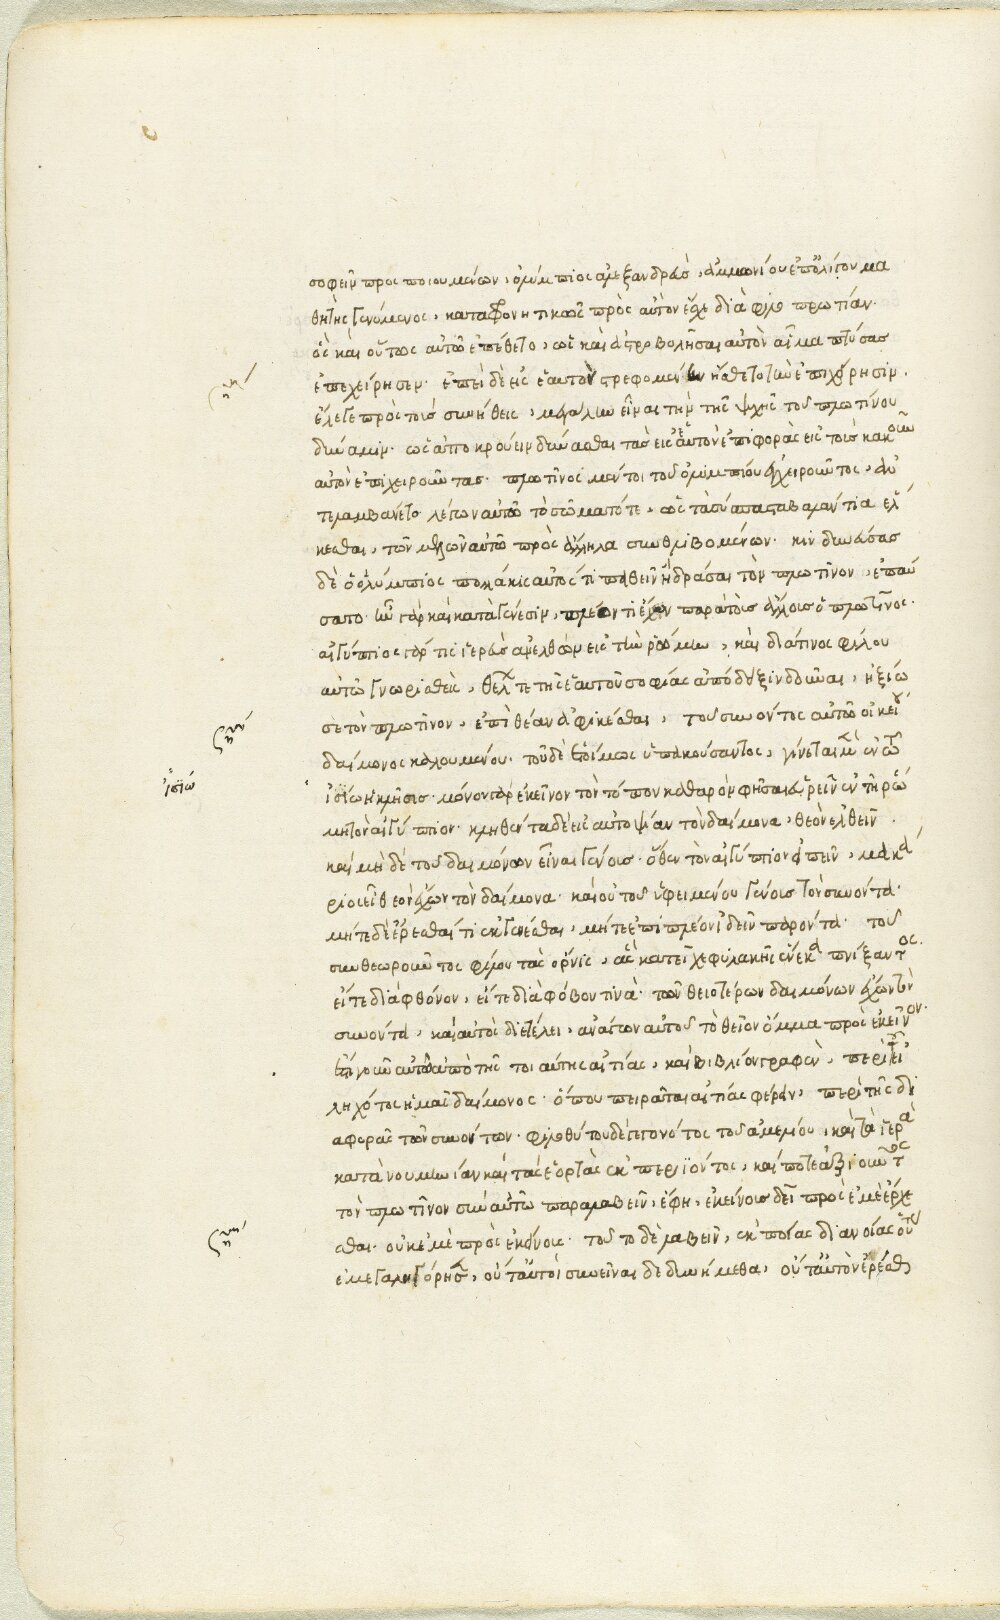 σοφεῖν προσποιουμένων, ὀλύμπιος ἀλεξανδρεὺς, ἀμμωνίου ἐπ' ὀλίγον μα
θητὴς γενόμενος, καταφρονητικῶς πρὸς αὐτὸν ἔσχε διὰ φιλοπρωτίαν.
ὃς καὶ οὕτως αὐτῶ ἐπέθετο, ὡς καὶ ἀστροβολῆσαι αὐτὸν αἷμα πτύσας
ἐπεχείρησεν. ἐπεὶ δὲ εἰς ἑαυτὸν στρεφομένην ἤσθετο τὴν ἐπιχείρησιν,
ἔλεγε πρὸς τοὺς συνήθεις, μεγάλην εἶναι τὴν τῆς ψυχῆς τοῦ πλωτίνου
δύναμιν. ὡς ἀποκρούειν δύνασθαι τὰς εἰς ἑαυτὸν ἐπιφορὰς εἰς τοὺς κακοῦν
αὐτὸν ἐπιχειροῦντας. πλωτῖνος μέντοι τοῦ ὀλυμπίου ἐγχειροῦντος, ἀν
τελαμβάνετο λέγων αὐτῶ τὸ σῶμα τότε, ὡς τὰ σύσπαστα βαλάντια ἕλ
κεσθαι, τῶν μελῶν αὐτῶ πρὸς ἄλληλα συνθλιβομένων. κινδυνεύσας
δὲ ὁ ὀλύμπιος πολλάκις αὐτός τι παθεῖν ἢ δράσαι τὸν πλωτῖνον, ἐπαύ
σατο. ἦν γὰρ καὶ κατὰ γένεσιν, πλέον τι ἔχων παρὰ τοὺς ἄλλους ὁ πλωτῖνος.
αἰγύπτιος γάρ τις ἱερεὺς ἀνελθὼν εἰς τὴν ῥώμην, καὶ διά τινος φίλου
αὐτῶ γνωρισθεὶς, θέλων τε τῆς ἑαυτοῦ σοφίας ἀπόδειξιν δοῦναι, ἠξίω
σε τὸν πλωτῖνον, ἐπὶ θέαν ἀφικέσθαι, τοῦ συνόντος αὐτῶ οἰκείου
δαίμονος καλουμένου. τοῦ δὲ ἑτοίμως ὑπακούσαντος, γίνεται μὲν ἐν τῶ
ἰσίω ἡ κλῆσις. μόνον γὰρ ἐκεῖνον τὸν τόπον καθαρὸν φῆσαι εὑρεῖν ἐν τῆ ῥώ
μη τὸν αἰγύπτιον. κληθέντα δὲ εἰς αὐτοψίαν τὸν δαίμονα, θεὸν ἐλθεῖν
καὶ μὴ δὲ τοῦ δαιμόνων εἶναι γένους. ὅθεν τὸν αἰγύπτιον εἰπεῖν, μακά
ριος εἶ θεὸν ἔχων τὸν δαίμονα. καὶ οὐ τοῦ ὑφειμένου γένους τὸν συνόντα.
μήτε δὲ ἐρέσθαί τι ἐκγενέσθαι, μήτε ἐπιπλέον ἰδεῖν παρόντα. τοῦ
συνθεωροῦντος φίλου τὰς ὄρνις, ἃς κατεῖχε φυλακῆς ἕνεκα πνίξαντος.
εἴτε διὰ φθόνον, εἴτε διὰ φόβον τινά. τῶν θειοτέρων δαιμόνων ἔχων τὸν
συνόντα, καὶ αὐτὸς διετέλει, ἀνάγων αὐτοῦ τὸ θεῖον ὄμμα πρὸς ἐκεῖνον.
ἔστι γοῦν αὐτῶ ἀπὸ τῆς τοιαύτης αἰτίας, καὶ βιβλίον γραφὲν, περὶ τοῦ εἰ
ληχότος ἡμᾶς δαίμονος. ὅπου πειρᾶται αἰτίας φέρειν, περὶ τῆς δι
αφορᾶς τῶν συνόντων. φιλοθύτου δὲ γεγονότος τοῦ ἀμελίου, καὶ τὰ ἱερὰ
κατὰ νουμηνίαν καὶ τὰς ἑορτὰς ἐκπεριϊόντος, καί ποτε ἀξιοῦντος
τὸν πλωτῖνον σὺν αὐτῶ παραλαβεῖν, ἔφη, ἐκείνους δεῖ πρὸς ἐμὲ ἔρχε
σθαι. οὐκ ἐμὲ πρὸς ἐκείνους. τοῦτο δὲ λαβεῖν, ἐκ ποίας διανοίας οὕτως
ἐμεγαληγόρησεν, οὔτ' αὐτοὶ συνεῖναι δεδυνήμεθα, οὔτ' αὐτὸν ἐρέσθαι
ἰσίω